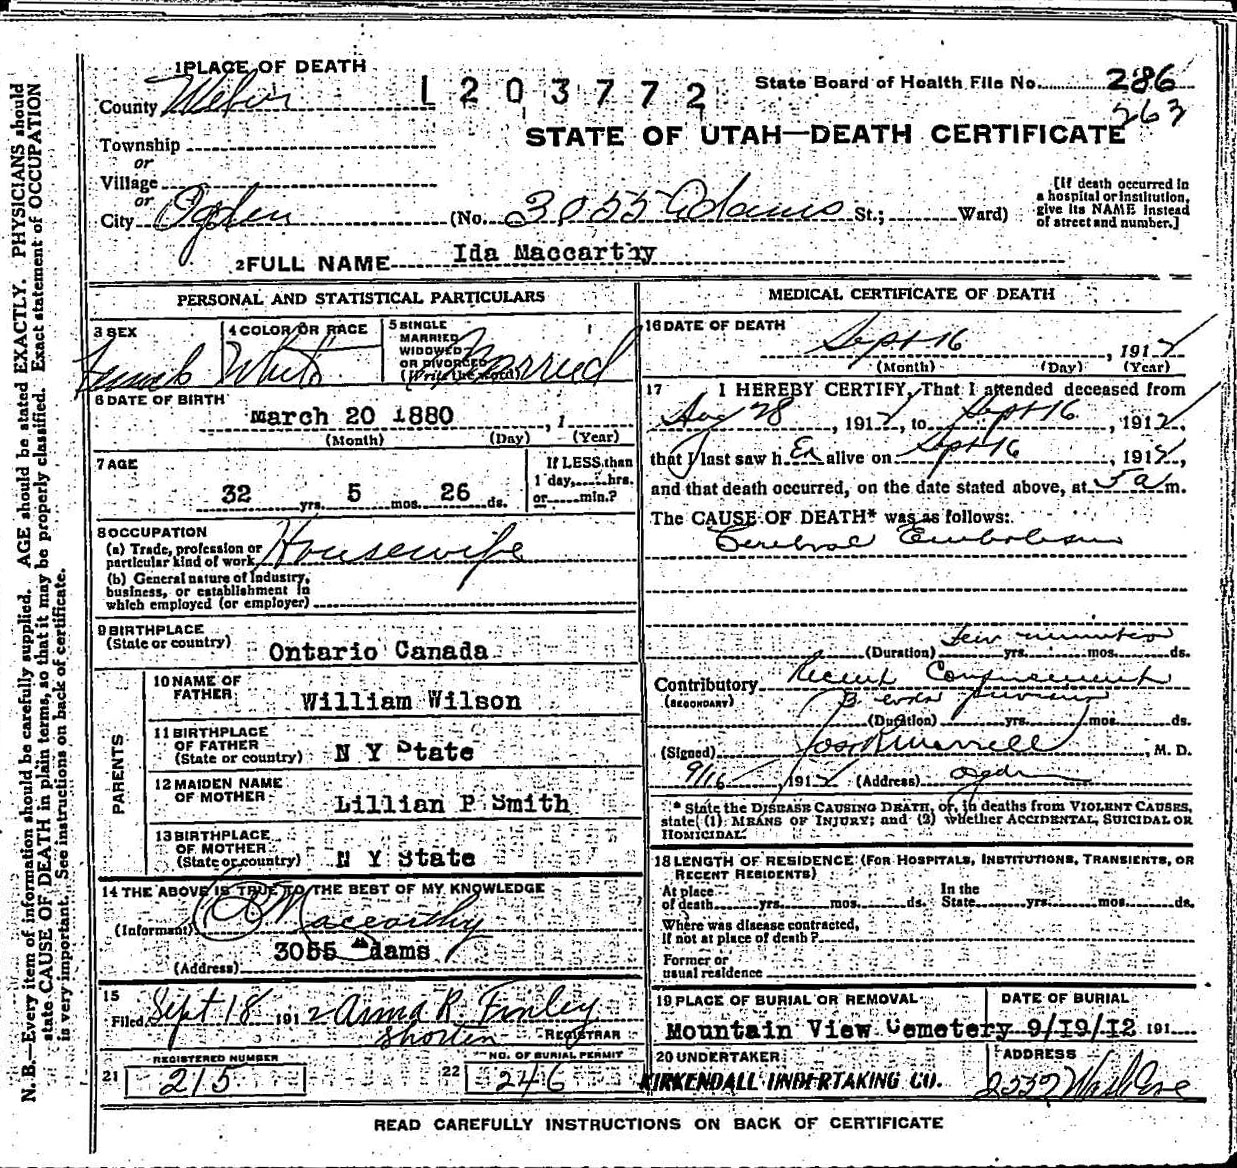 1 PLACE OF DEATH
County Weber
1203772
State Board of Health File No. 286
263
STATE OF UTAH—DEATH CERTIFICATE
Township
or
Village
or
City Ogden (No. 3055 Adams St.; Ward)
[If death occurred in a hospital or institution, give its NAME instead of street and number.]
2 FULL NAME Ida Maccarthy
PERSONAL AND STATISTICAL PARTICULARS
3 SEX Female
4 COLOR OR RACE White
5 SINGLE MARRIED WIDOWED OR DIVORCED (Write the word) Married
6 DATE OF BIRTH
March 20 1880, 1
(Month) (Day) (Year)
7 AGE
32 yrs. 5 mos. 26 ds.
If LESS than 1 day, hrs. or min.?
8 OCCUPATION
(a) Trade, profession or particular kind of work Housewife
(b) General nature of industry, business, or establishment in which employed (or employer)
9 BIRTHPLACE
(State or country) Ontario Canada
PARENTS
10 NAME OF FATHER William Wilson
11 BIRTHPLACE OF FATHER (State or country) N Y State
12 MAIDEN NAME OF MOTHER Lillian P Smith
13 BIRTHPLACE OF MOTHER (State or country) N Y State
14 THE ABOVE IS TRUE TO THE BEST OF MY KNOWLEDGE
(Informant) Maccarthy
(Address) 3055 Adams
15
Filed Sept 18 1912 Anna R. Finley
REGISTRAR
REGISTERED NUMBER
21 215
NO. OF BURIAL PERMIT
22 246
MEDICAL CERTIFICATE OF DEATH
16 DATE OF DEATH
Sept 16, 1912
(Month) (Day) (Year)
17 I HEREBY CERTIFY, That I attended deceased from
Aug 28, 1912, to Sept 16, 1912
that I last saw h er alive on Sept 16, 1912,
and that death occurred, on the date stated above, at 5 a m.
The CAUSE OF DEATH* was as follows:
Cerebral Embolism
few minutes
(Duration) yrs. mos. ds.
Contributory Recent Confinement
(SECONDARY)
(Duration) yrs. mos. ds.
(Signed) Jos R Morrell, M. D.
9/16 1912 (Address) Ogden
* State the DISEASE CAUSING DEATH, or, in deaths from VIOLENT CAUSES, state (1) MEANS OF INJURY; and (2) whether ACCIDENTAL, SUICIDAL OR HOMICIDAL.
18 LENGTH OF RESIDENCE (FOR HOSPITALS, INSTITUTIONS, TRANSIENTS, OR RECENT RESIDENTS)
At place of death yrs. mos. ds. In the State yrs. mos. ds.
Where was disease contracted, If not at place of death?
Former or usual residence
19 PLACE OF BURIAL OR REMOVAL DATE OF BURIAL
Mountain View Cemetery 9/19/12 191
20 UNDERTAKER ADDRESS
KIRKENDALL UNDERTAKING CO. 2532 Wash Ave
READ CAREFULLY INSTRUCTIONS ON BACK OF CERTIFICATE
N. B.—Every item of information should be carefully supplied. AGE should be stated EXACTLY. PHYSICIANS should
state CAUSE OF DEATH in plain terms, so that it may be properly classified. Exact statement of OCCUPATION
is very important. See instructions on back of certificate.